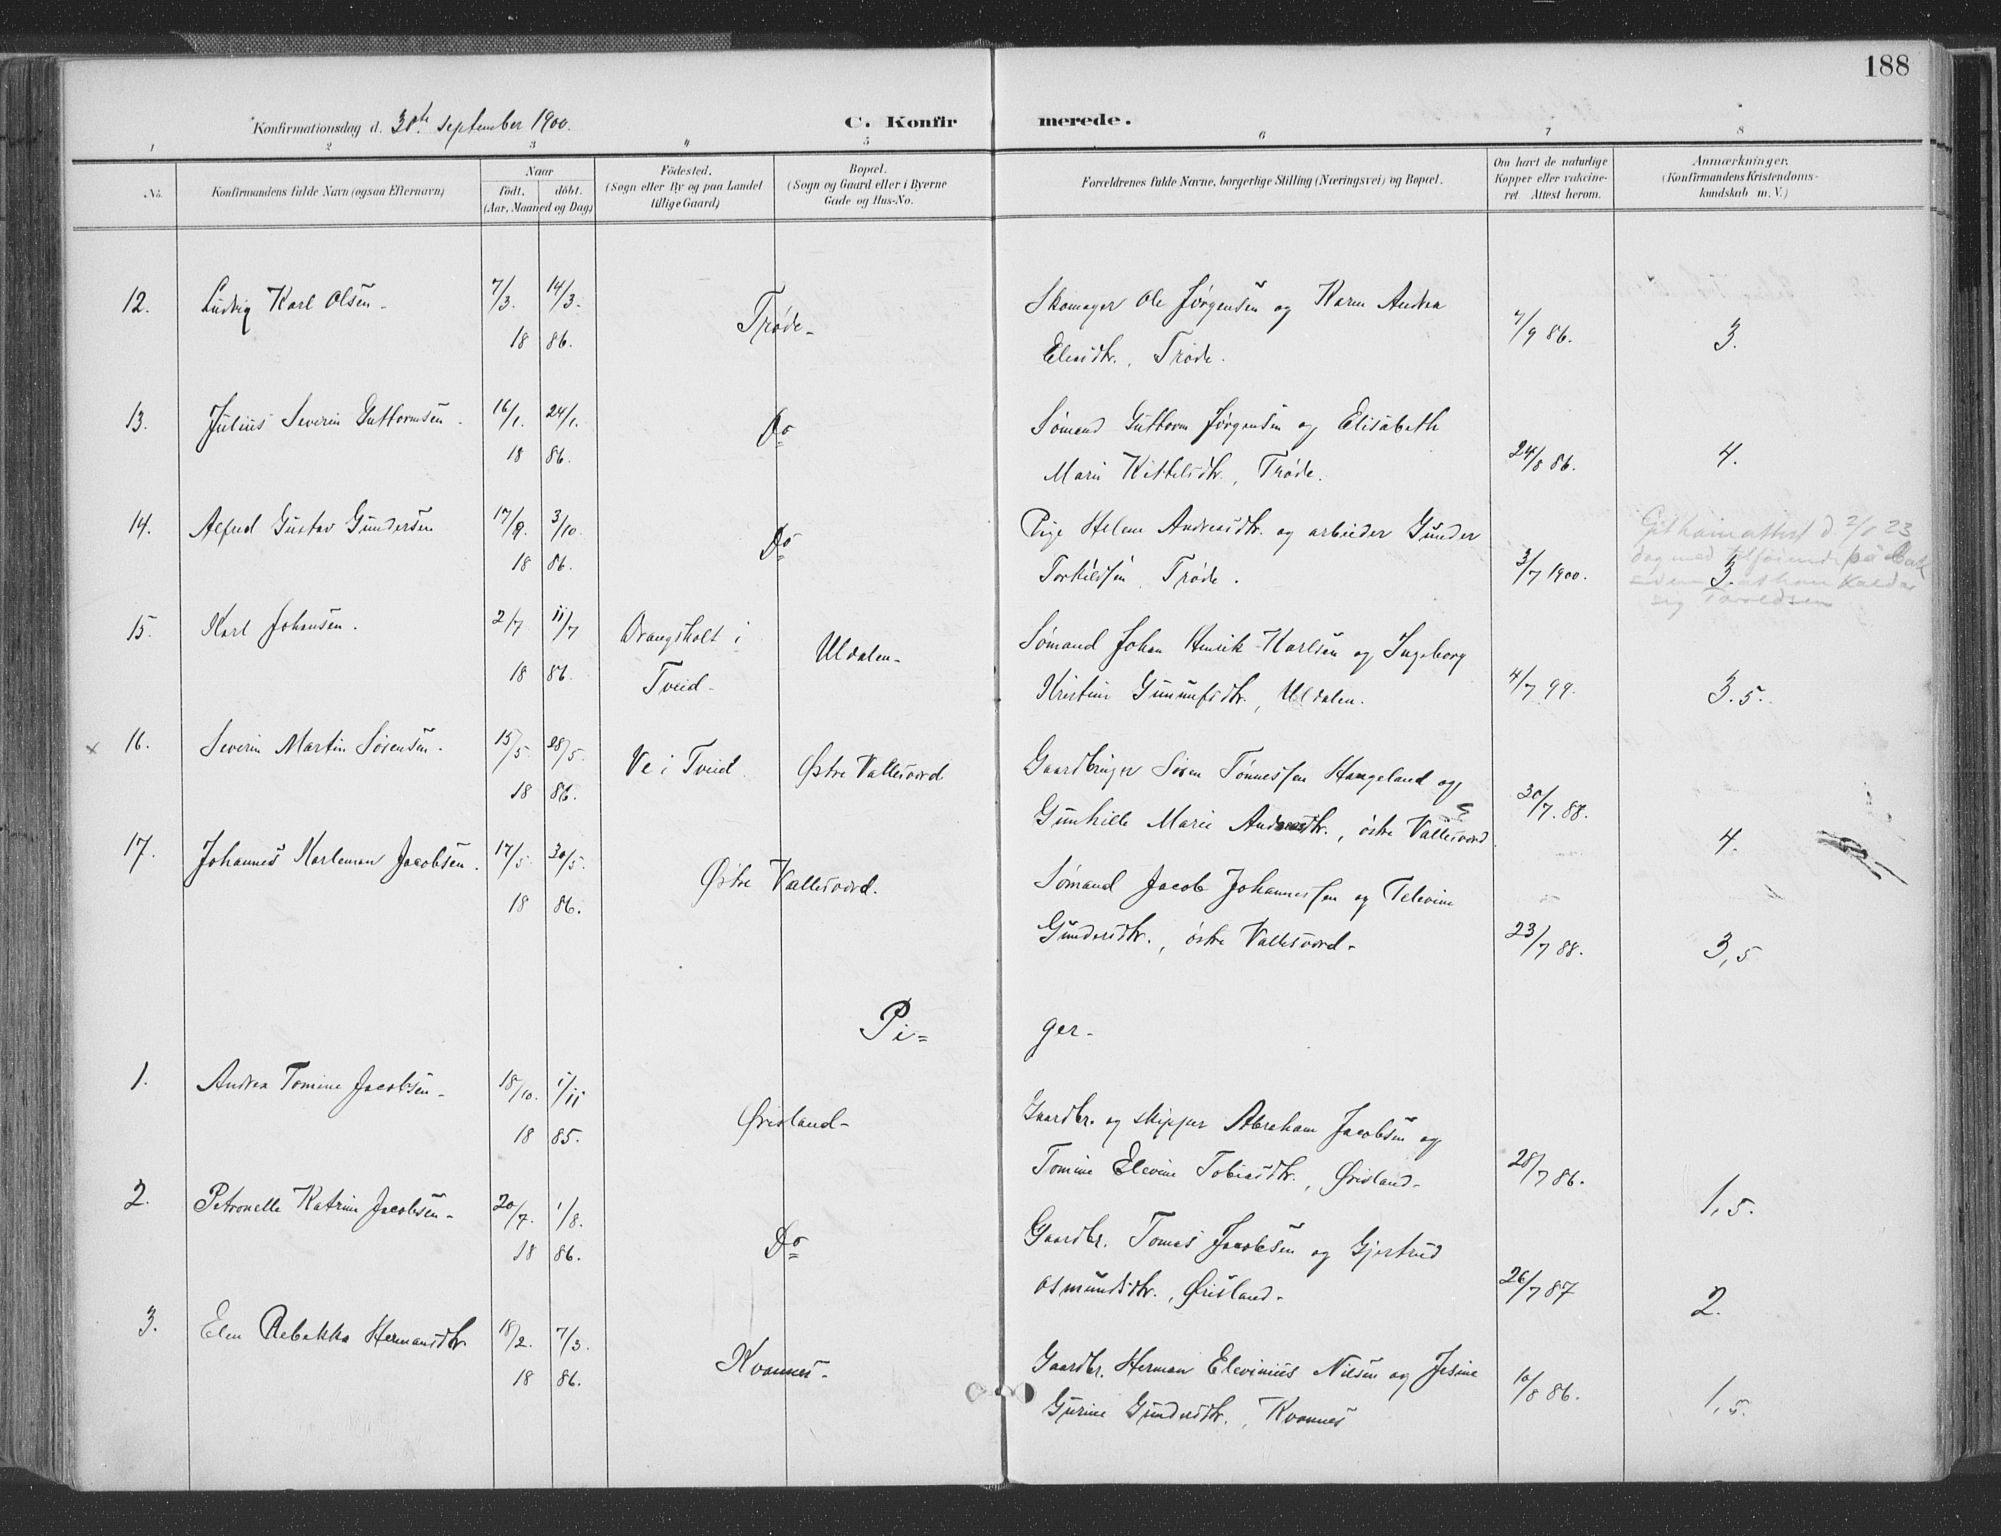 188
Konfirmationsdag d. 30te September 1900. C. Konfirmerede.
1 2 3 4 5 6 7 8
No. Konfirmandens fulde Navn (ogsaa Efternavn) Naar födt. döbt. (Aar, Maaned og Dag) Födested. (Sogn eller By og paa Landet tillige Gaard) Bopæl. (Sogn og Gaard eller i Byerne Gade og Hus-No. Forældrenes fulde Navne, borgerlige Stilling (Næringsvei) og Bopæl. Om havt de naturlige Kopper eller vakcineret Attest herom. Anmærkninger. (Konfirmandens Kristendomskundskab m. V.)
12. Ludvig Karl Olsen - 7/3. 14/3. Trøde - Skomager Ole Jørgensen og Karen Andrea
18 86. Elensdtr., Trøde. 7/9 86. 3.
13. Julius Severin Guttormsen. 16/1. 24/1. Do Sømand Guttorm Jørgensen og Elisabeth
18 86. Marie Kittelsdtr., Trøde. 24/8 86. 4.
14. Alfred Gustav Gundersen 17/9. 3/10. Do Pige Helene Andreasdtr. og arbeider Gunder
18 86. Torkildsen, Trøde. 3/7 1900. 3.
sig Taroldsen
15. Karl Johansen. 2/7 11/7 Drangsholt i Uldalen - Sømand Johan Henrik Karlsen og Ingeborg
18 86. Tveid - Kristine Gunuufsdtr., Uldalen. 4/7 99. 3.5.
x 16. Severin Martin Sørensen. 15/5. 28/5. Ve i Tveid Østre Vallesværd Gaardbruger Søren Tønnessen Haugeland og
18 86. Gunhille Marie Andreasdtr., østre Vallesværd. 30/7. 88. 4.
17. Johannes Karleman Jacobsen. 17/5. 30/5. Østre Vallesværd. Sømand Jacob Johannessen og Televine
18 86. Gundersdtr., østre Vallesværd - 23/7 88. 3,5
Pi= ger -
1. Andrea Tomine Jacobsen - 18/10. 1/11 Øvisland - Gaardbr. og skipper Abraham Jacobsen og
18 85. Tomine Elevine Tobiasdtr., Øvisland - 28/7 86. 1,5.
2. Petronelle Katrine Jacobsen - 20/7. 1/8. Do Gaardbr. Tomas Jacobsen og Gjertrud
18 86. Osmundsdtr., Øvisland - 26/7 87 2.
3. Elen Rebekka Hermansdtr 18/2. 7/3. Kvannes - Gaardbr. Herman Elevinius Nilsen og Jesine
18 86. Gurine Gundersdtr., Kvannes 10/8 86. 1,5.